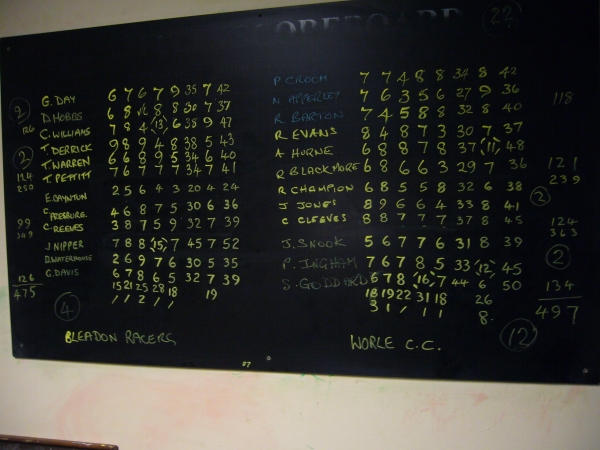 SCOREBOARD
22
2
G. DAY 6 7 6 7 9 35 7 42
126 D. HOBBS 6 8 8 8 30 7 37
C. WILLIAMS 7 8 4 13 6 38 9 47
2 T. DERRICK 9 8 9 4 8 38 5 43
T. WARREN 6 6 8 9 5 34 6 40
124 T. PETTITT 7 6 7 7 7 34 7 41
250 E. DAYNTON 2 5 6 4 3 20 4 24
C. 4 6 8 7 5 30 6 36
99 C. REEVES 3 8 7 5 9 32 7 39
349
J. NIPPER 7 8 8 15 7 45 7 52
D. WATERHOUSE 2 6 9 7 6 30 5 35
126 G. DAVIS 6 7 8 6 5 32 7 39
475 15 21 25 28 18 19
4 1 1 2 1 1
BLEADON RACERS
P. CROOM 7 7 4 8 8 34 8 42
N APPERLEY 7 6 3 5 6 27 9 36 118
R BARTON 7 4 5 8 8 32 8 40
R EVANS 8 4 8 7 3 30 7 37
A HORNE 6 8 8 7 8 37 11 48 121
R BLACKMORE 6 8 6 6 3 29 7 36 239
R CHAMPION 6 8 5 5 8 32 6 38 2
J. JONES 8 9 6 6 4 33 8 41
C CLEEVES 8 8 7 7 7 37 8 45 124
363
J. SNOOK 5 6 7 7 6 31 8 39
P. INGHAM 7 6 7 8 5 33 12 45 2
S. GODDARD 6 7 8 16 7 44 6 50 134
18 19 22 31 18 26 497
3 1 1 1 1 8. 12
WORLE C.C.